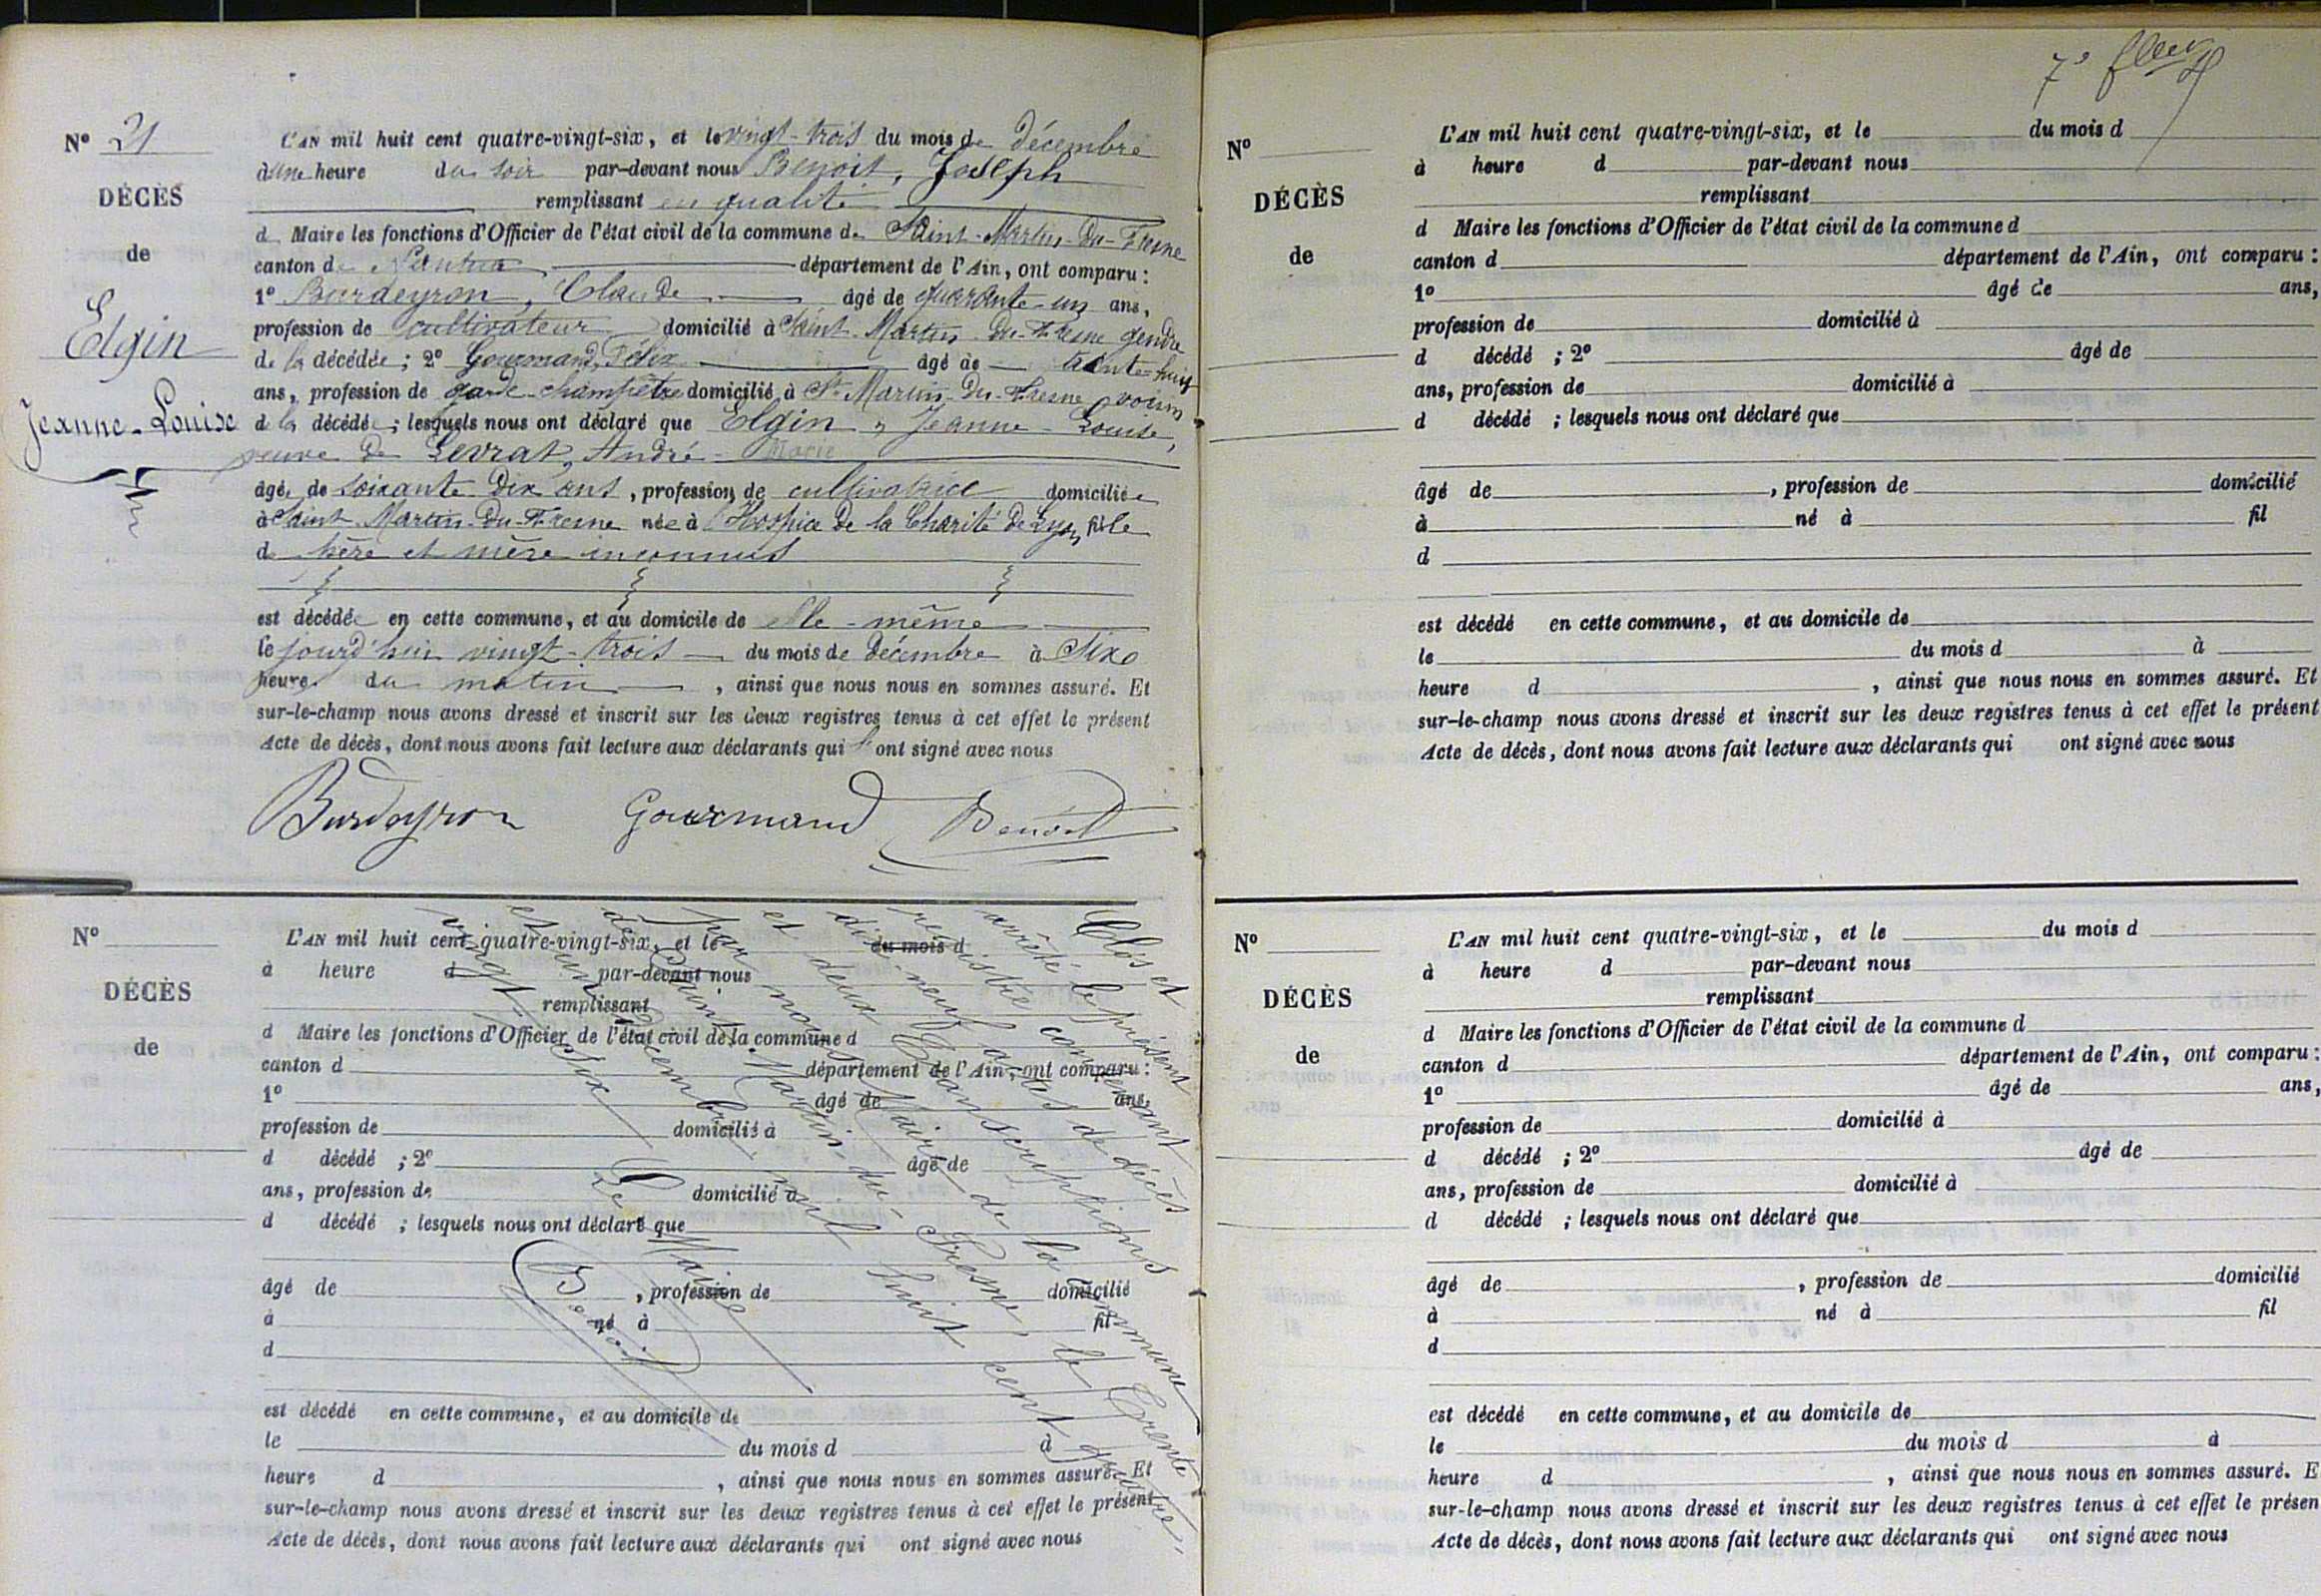 N° 21
DÉCÈS
de
Elgin
Jeanne-Louise
L'AN mil huit cent quatre-vingt-six, et le vingt-trois du mois de décembre
d'une heure du soir par-devant nous Benoit, Joseph
remplissant en qualité
d Maire les fonctions d'Officier de l'état civil de la commune de Saint-Martin-du-Fresne
canton de Nantua département de l'Ain, ont comparu :
1° Burdeyron, Claude âgé de quarante-un ans,
profession de cultivateur domicilié à Saint-Martin-du-Fresne gendre
de la décédée ; 2° Gourmand, Félix âgé de trente-huit
ans, profession de garde-champêtre domicilié à St Martin-du-Fresne voisin
de la décédée ; lesquels nous ont déclaré que Elgin, Jeanne-Louise,
veuve de Levrat, André-Marie
âgée de soixante-dix ans, profession de cultivatrice domiciliée
à Saint-Martin-du-Fresne née à l'Hospice de la Charité de Lyon, fille
de père et mère inconnus
est décédée en cette commune, et au domicile de elle-même
le jourd'hui vingt-trois du mois de décembre à six
heures du matin, ainsi que nous nous en sommes assuré. Et
sur-le-champ nous avons dressé et inscrit sur les deux registres tenus à cet effet le présent
Acte de décès, dont nous avons fait lecture aux déclarants qui ont signé avec nous
Burdeyron Gourmand Benoit
N°
DÉCÈS
de
L'AN mil huit cent quatre-vingt-six, et le du mois d
à heure d par-devant nous
remplissant
d Maire les fonctions d'Officier de l'état civil de la commune d
canton d département de l'Ain, ont comparu :
1° âgé de ans,
profession de domicilié à
d décédé ; 2° âgé de
ans, profession de domicilié à
d décédé ; lesquels nous ont déclaré que
âgé de , profession de domicilié
à né à fil
d
est décédé en cette commune, et au domicile de
le du mois d à
heure d , ainsi que nous nous en sommes assuré. Et
sur-le-champ nous avons dressé et inscrit sur les deux registres tenus à cet effet le présent
Acte de décès, dont nous avons fait lecture aux déclarants qui ont signé avec nous
Clos et
arrêté le présent
registre contenant
dix-neuf actes de décès
et deux transcriptions
par nous Maire de la commune
de Saint-Martin-du-Fresne le trente
et un décembre mil huit cent quatre
vingt-six
Le Maire
Benoit
7e
N°
DÉCÈS
de
L'AN mil huit cent quatre-vingt-six, et le du mois d
à heure d par-devant nous
remplissant
d Maire les fonctions d'Officier de l'état civil de la commune d
canton d département de l'Ain, ont comparu :
1° âgé de ans,
profession de domicilié à
d décédé ; 2° âgé de
ans, profession de domicilié à
d décédé ; lesquels nous ont déclaré que
âgé de , profession de domicilié
à né à fil
d
est décédé en cette commune, et au domicile de
le du mois d à
heure d , ainsi que nous nous en sommes assuré. Et
sur-le-champ nous avons dressé et inscrit sur les deux registres tenus à cet effet le présent
Acte de décès, dont nous avons fait lecture aux déclarants qui ont signé avec nous
N°
DÉCÈS
de
L'AN mil huit cent quatre-vingt-six, et le du mois d
à heure d par-devant nous
remplissant
d Maire les fonctions d'Officier de l'état civil de la commune d
canton d département de l'Ain, ont comparu :
1° âgé de ans,
profession de domicilié à
d décédé ; 2° âgé de
ans, profession de domicilié à
d décédé ; lesquels nous ont déclaré que
âgé de , profession de domicilié
à né à fil
d
est décédé en cette commune, et au domicile de
le du mois d à
heure d , ainsi que nous nous en sommes assuré. E
sur-le-champ nous avons dressé et inscrit sur les deux registres tenus à cet effet le présen
Acte de décès, dont nous avons fait lecture aux déclarants qui ont signé avec nous